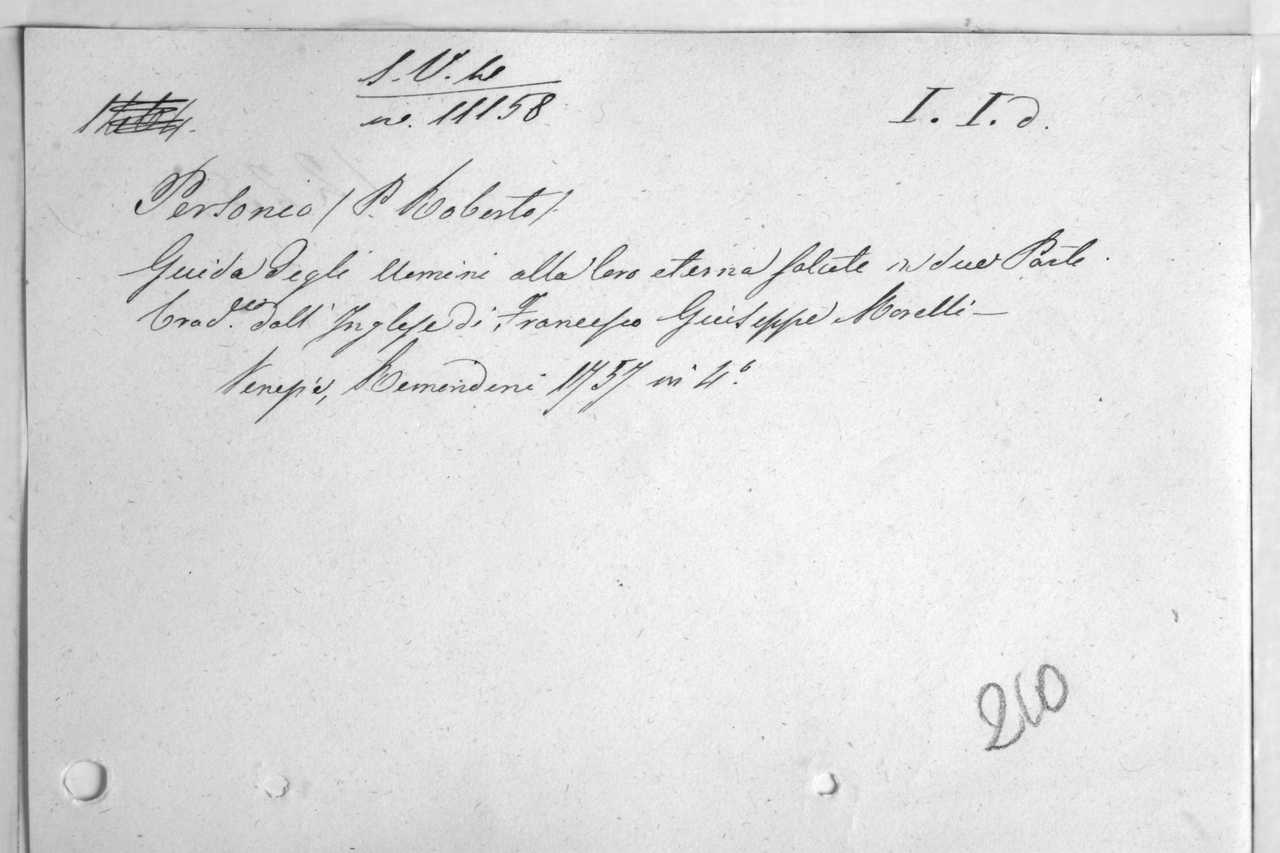 S. V. he
no. 11158
I. I. d.
Personio (P. Roberto)
Guida degli Uomini alla loro eterna salute in due Parte.
Trad.ne dall' Inglese di Francesco Giuseppe Morelli—
Venezia, Remondini 1757 in 4.o
210